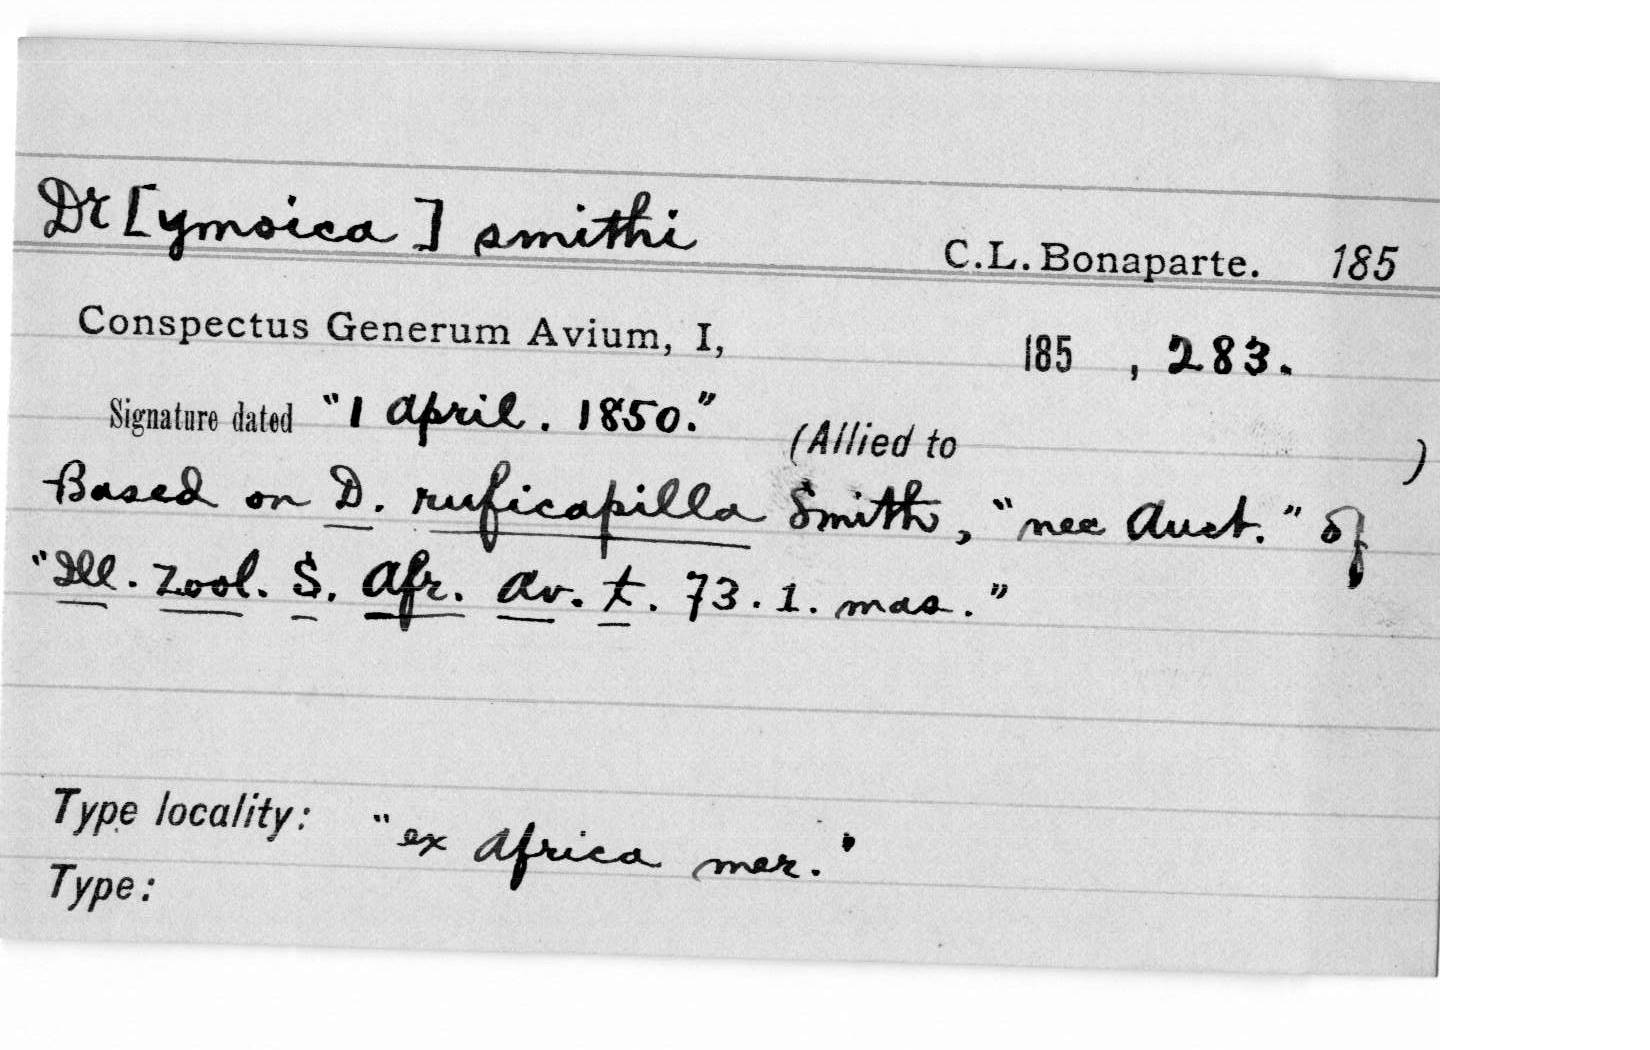 Dr [ymoica] smithi C.L. Bonaparte. 185
Conspectus Generum Avium, I, 185 , 283.
Signature dated "1 April. 1850." (Allied to )
Based on D. ruficapilla Smith, "nec Auct." of
"Ill. Zool. S. Afr. Av. t. 73. 1. mas."
Type locality: "ex Africa mer."
Type: